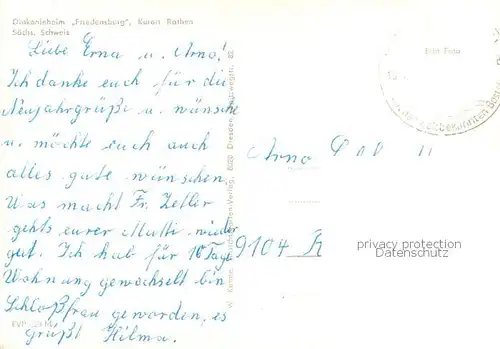 Diakonieheim „Friedensburg", Kurort Rathen
Sächs. Schweiz
Liebe Erna u. Arno!
Ich danke euch für die
Neujahrgrüße u. wünsche
u. möchte euch auch
alles gute wünschen
Was macht Fr. Zeller
gehts eurer Mutti wieder
gut. Ich hab für 10 Tage
Wohnung gewechselt bin
Schloßfrau geworden, es
grüßt Hilma.
EVP
Echt Foto
8020 Dresden
Arno
9104 R
privacy protection
Datenschutz